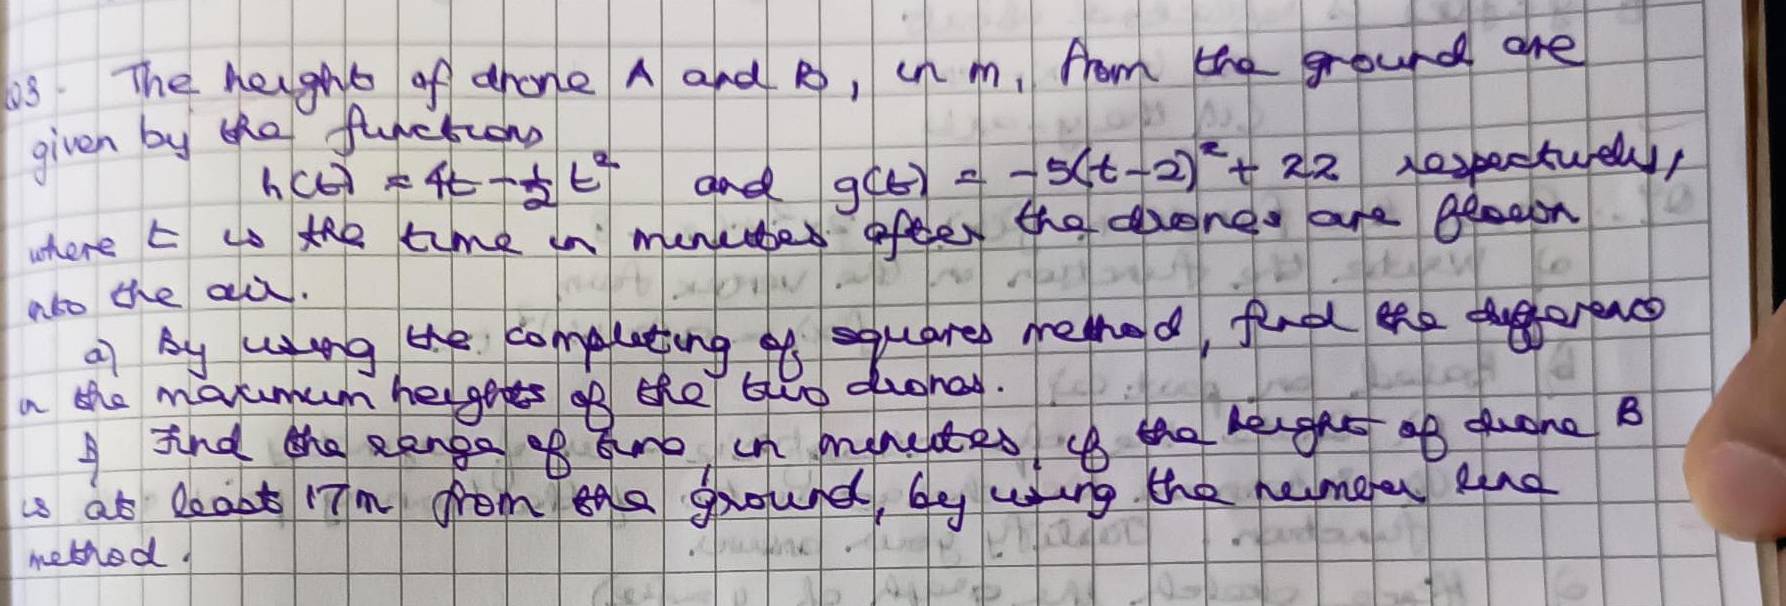 Q3. The height of drone A and B, in m, from the ground are
given by the functions
h(t) = 4t - 1/2 t² and g(t) = -5(t-2)² + 22 respectively,
where t is the time in minutes after the drones are flown
into the air.
a) By using the completing of squares method, find the difference
in the maximum heights of the two drones.
b) Find the range of time, in minutes, if the height of drone B
is at least 17m from the ground, by using the number line
method.